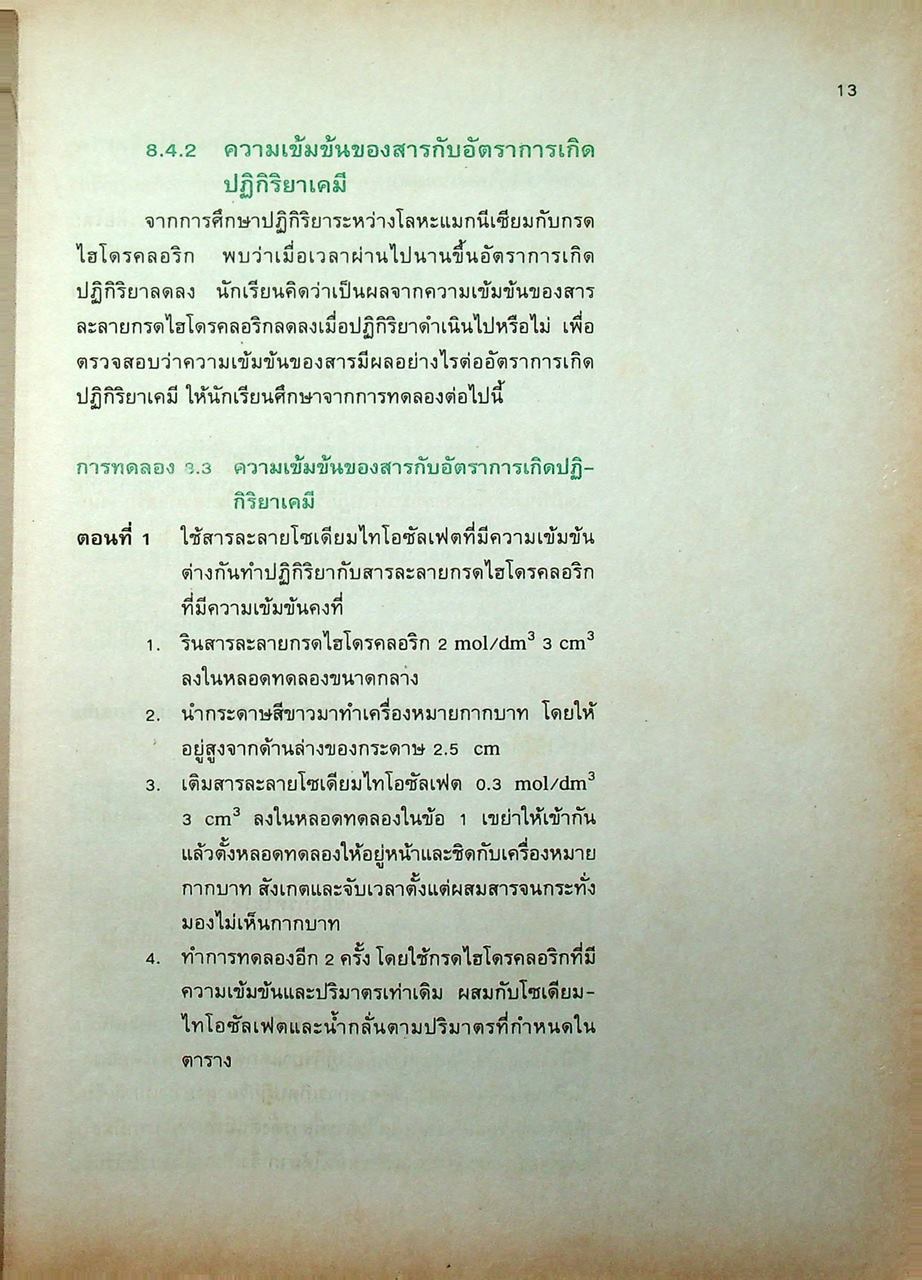 13
8.4.2 ความเข้มข้นของสารกับอัตราการเกิด
ปฏิกิริยาเคมี
จากการศึกษาปฏิกิริยาระหว่างโลหะแมกนีเซียมกับกรด
ไฮโดรคลอริก พบว่าเมื่อเวลาผ่านไปนานขึ้นอัตราการเกิด
ปฏิกิริยาลดลง นักเรียนคิดว่าเป็นผลจากความเข้มข้นของสาร
ละลายกรดไฮโดรคลอริกลดลงเมื่อปฏิกิริยาดำเนินไปหรือไม่ เพื่อ
ตรวจสอบว่าความเข้มข้นของสารมีผลอย่างไรต่ออัตราการเกิด
ปฏิกิริยาเคมี ให้นักเรียนศึกษาจากการทดลองต่อไปนี้
การทดลอง 8.3 ความเข้มข้นของสารกับอัตราการเกิดปฏิ-
กิริยาเคมี
ตอนที่ 1 ใช้สารละลายโซเดียมไทโอซัลเฟตที่มีความเข้มข้น
ต่างกันทำปฏิกิริยากับสารละลายกรดไฮโดรคลอริก
ที่มีความเข้มข้นคงที่
1. รินสารละลายกรดไฮโดรคลอริก 2 mol/dm³ 3 cm³
ลงในหลอดทดลองขนาดกลาง
2. นำกระดาษสีขาวมาทำเครื่องหมายกากบาท โดยให้
อยู่สูงจากด้านล่างของกระดาษ 2.5 cm
3. เติมสารละลายโซเดียมไทโอซัลเฟต 0.3 mol/dm³
3 cm³ ลงในหลอดทดลองในข้อ 1 เขย่าให้เข้ากัน
แล้วตั้งหลอดทดลองให้อยู่หน้าและชิดกับเครื่องหมาย
กากบาท สังเกตและจับเวลาตั้งแต่ผสมสารจนกระทั่ง
มองไม่เห็นกากบาท
4. ทำการทดลองอีก 2 ครั้ง โดยใช้กรดไฮโดรคลอริกที่มี
ความเข้มข้นและปริมาตรเท่าเดิม ผสมกับโซเดียม-
ไทโอซัลเฟตและน้ำกลั่นตามปริมาตรที่กำหนดใน
ตาราง